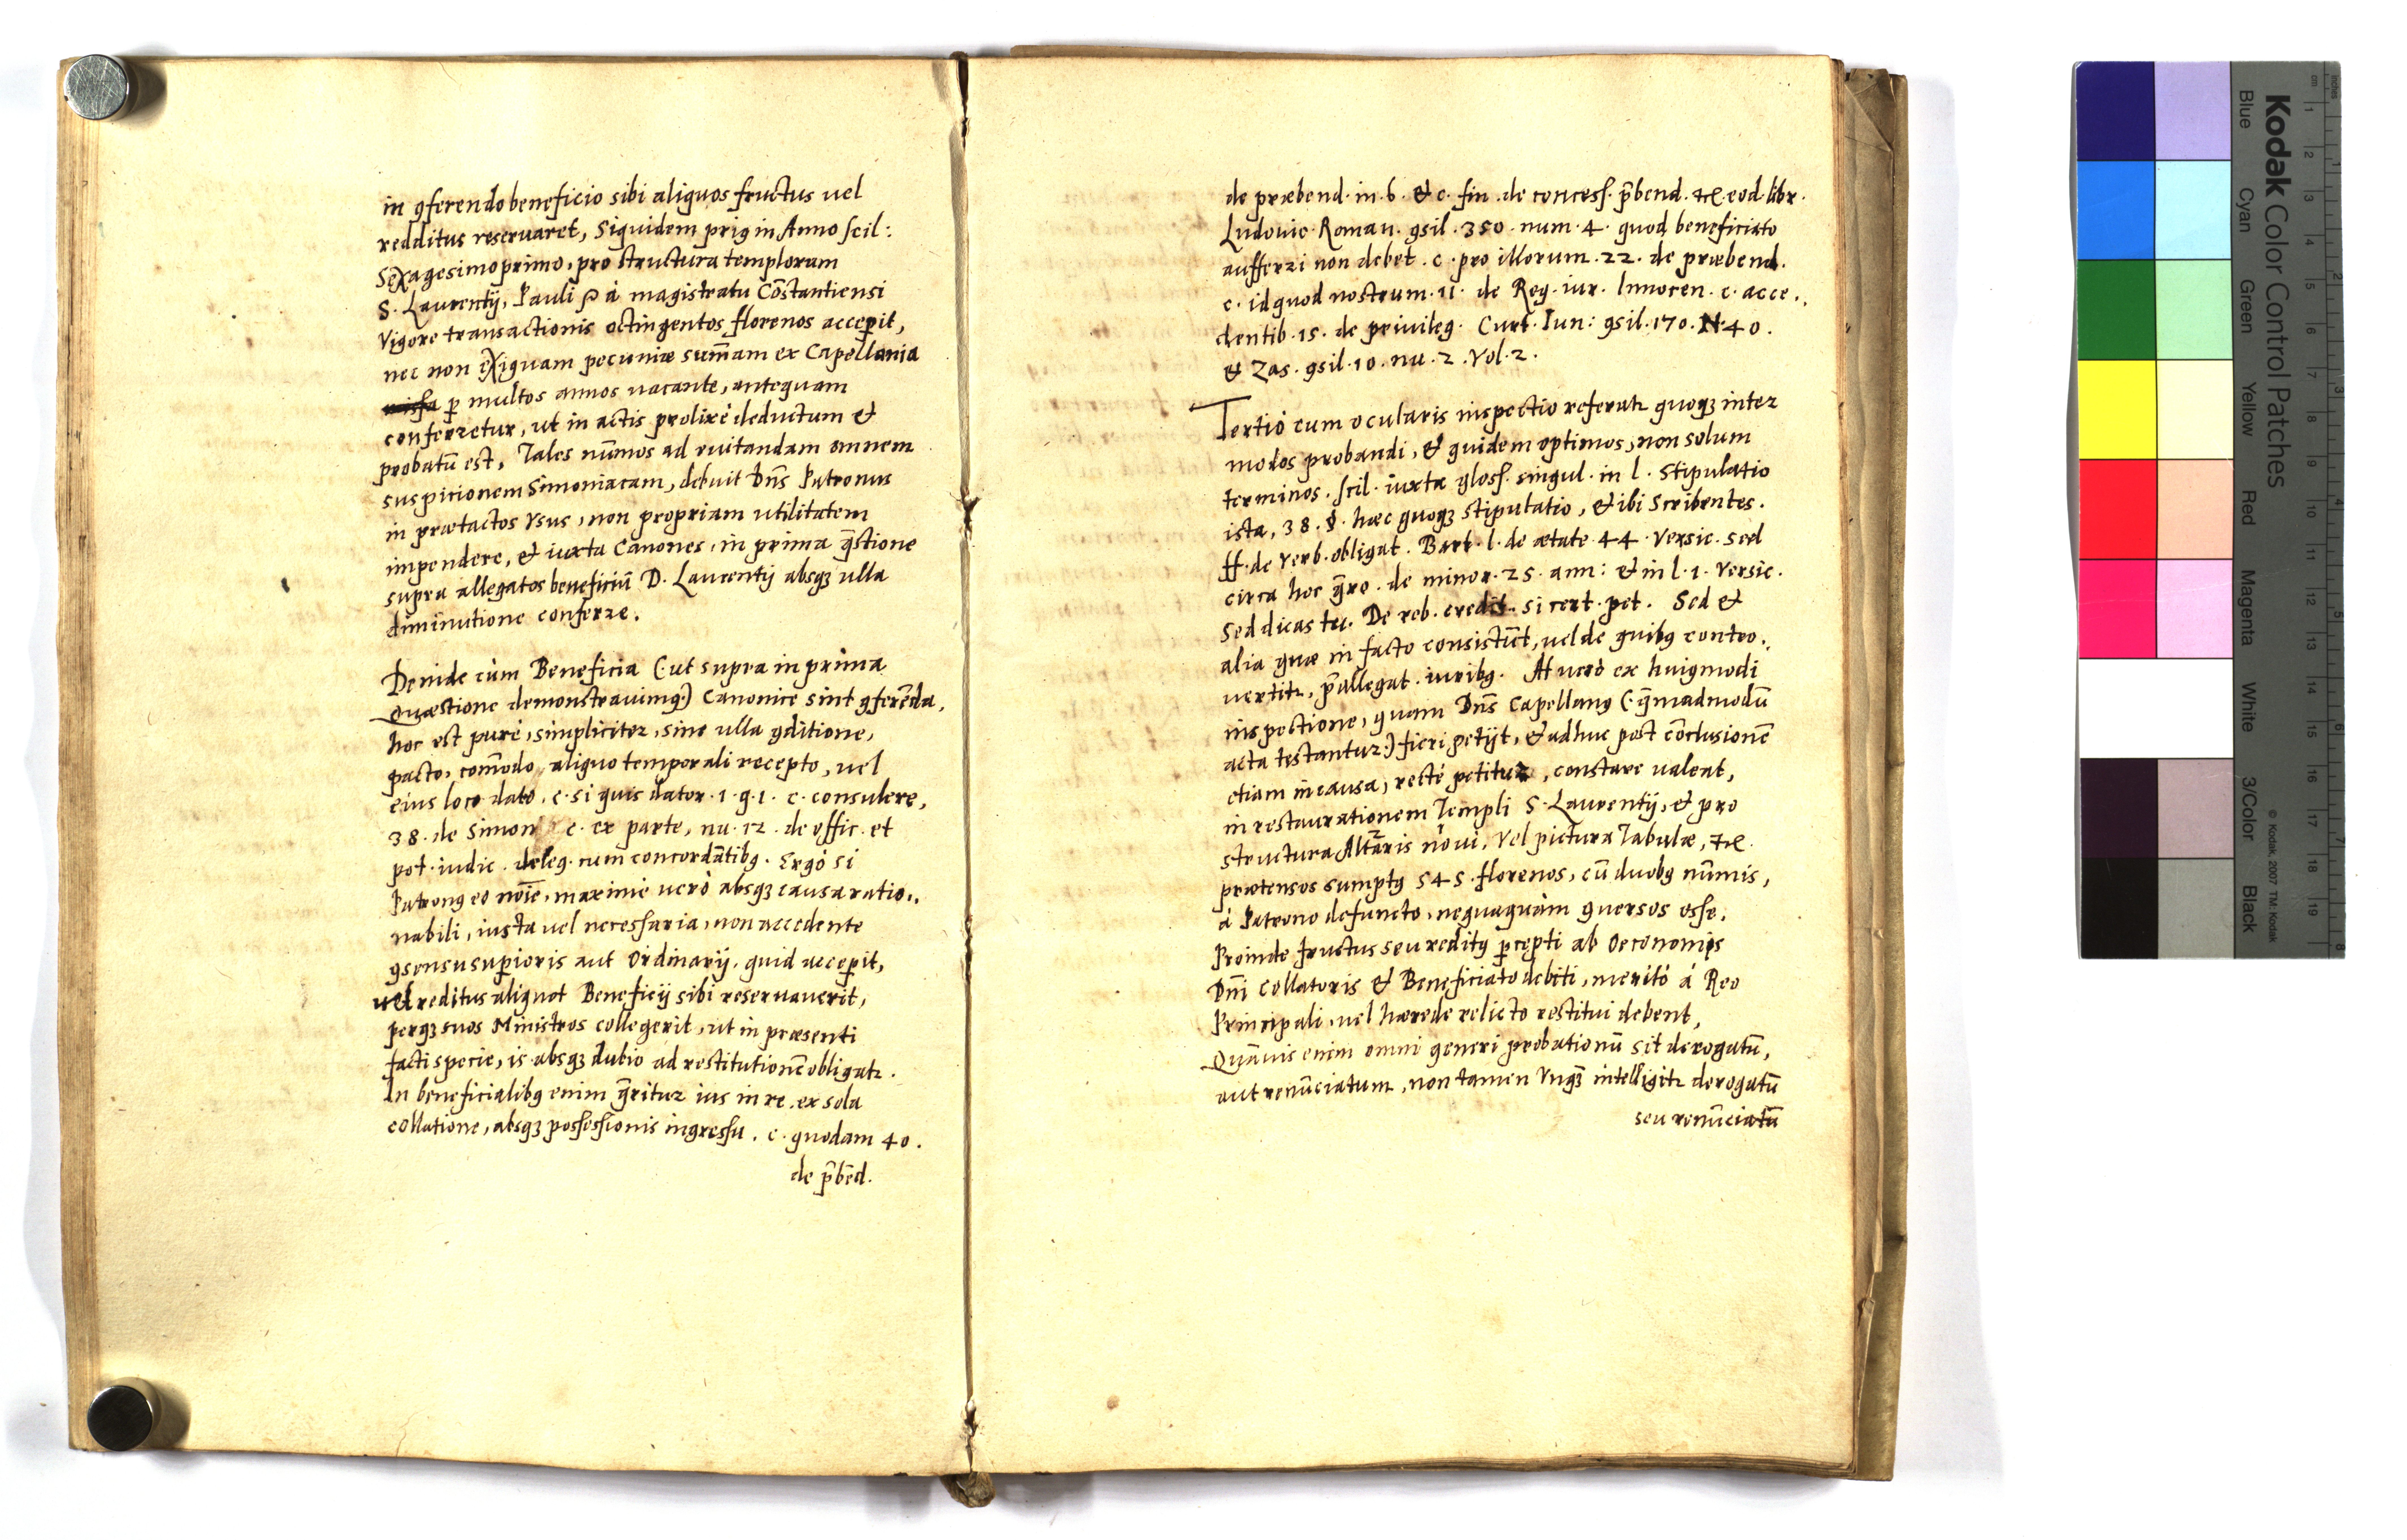 in ꝯferendo beneficio sibi aliquos fructus uel
redditus reseruaret, Siquidem priꝯ in Anno scil:
Sexagesimoprimo, pro structura templorum
S. Laurentij, Pauli à magistratu Cōstantiensi
Vigore transactionis octingentos florenos acceꝑit,
nec non exiguam pecuniæ sum̄am ex Capellania
ꝑ multos annos uacante, antequam
conferretur, ut in actis prolixè deductum &
probatū est, Tales nūmos ad euitandam omnem
suspicionem Simoniacam, debuit Dn̄s Patronus
in prætactos Vsus, non propriam utilitatem
impendere, et iuxta Canones, in prima q̄stione
supra allegatos beneficiū D. Laurentij absqꝫ ulla
diminutione conferre.
Deinde cùm Beneficia (: ut supra in prima
Quæstione demonstrauimꝯ:) Canonicè sint ꝯferēda,
hoc est purè, simpliciter, sine ulla ꝯditione,
pacto, com̄odo, aliquo temporali recepto, uel
eius loco dato, c. si quis dator. 1. q. 1. c. consulere,
38. de Simon c. ex parte, nu. 12. de offic. et
pot. iudic. deleg. cum concordātibꝯ. Ergò si
Patronꝯ eo noīe, maximè uerò absqꝫ causa ratio„
nabili, iusta uel necessaria, non accedente
ꝯsensu suꝑioris aut Ordinarij, quid acceꝑit,
uel reditus aliquot Beneficij sibi reseruauerit,
perqꝫ suos Ministros collegerit, ut in præsenti
facti specie, is absqꝫ dubio ad restitutionē obligatr.
In beneficialibꝯ enim q̄ritur ius in re, ex sola
collatione, absqꝫ possessionis ingressu. c. quodam 40.
de p̄bēd.
de præbend. in. 6. & c. fin. de concess. p̄bend. &c. eod. libr.
Ludouic. Roman. ꝯsil. 350. num. 4. quod beneficiato
aufferri non debet. c. pro illorum. 22. de præbend.
c. id quod nostrum. 11. de Reg. iur. Innocen. c. acce„
dentib. 15. de priuileg. Curt. Iun: ꝯsil. 170. N. 40.
& Zas. ꝯsil. 10. nu. 2. Vol. 2.
Tertiò cum ocularis inspectio referatr quoqꝫ inter
modos probandi, & quidem optimos, non solum
terminos. scil. iuxta gloss. singul. in l. Stipulatio
ista, 38. §. hæc quoqꝫ stipulatio, & ibi Scribentes.
ff. de Verb. obligat. Bart. l. de ætate 44. Versic. sed
circa hoc q̄ro. de minor. 25. ann: & in l. 1. Versic.
Sed dicas tu. De reb. credit. si cert. pet. Sed &
alia quæ in facto consistūt, uel de quibꝯ contro„
uertitr, p̄allegat. iuribꝯ. At uerò ex huiꝯmodi
inspectione, quam Dn̄s Capellanꝯ (: q̄madmodū
acta testantur:) fieri petijt, & adhuc post cōclusionē
etiam in causa, rectè petitur, constare ualeat,
in restaurationem Templi S. Laurentij, & pro
structura Altaris noui, Vel pictura Tabulæ, &c.
prætensos sumptꝯ 545. florenos, cū duobꝯ nūmis,
à Patrono defuncto, nequaquàm ꝯuersos esse.
Proinde fructus seu reditꝯ ꝑcepti ab Oeconomis
Dn̄i Collatoris & Beneficiato debiti, meritò à Reo
Principali, uel hærede relicto restitui debent,
Quāuis enim omni generi probationū sit derogatū,
aut renūciatum, non tamen Vnqꝫ intelligitr derogatū
seu renūciatū